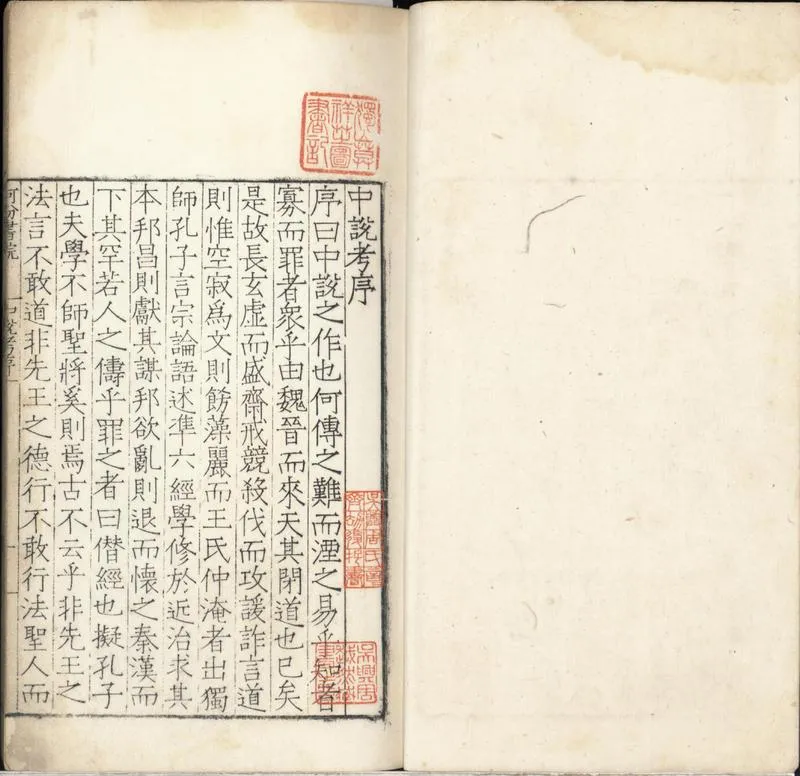 中說考序
序曰中說之作也何傳之難而湮之易乎知者
寡而罪者衆乎由魏晉而來天其閉道也已矣
是故長玄虛而盛齋戒競殺伐而攻諼詐言道
則惟空寂爲文則餝藻麗而王氏仲淹者出獨
師孔子言宗論語述準六經學修於近治求其
本邦昌則獻其謀邦欲亂則退而懷之秦漢而
下其罕若人之儔乎罪之者曰僭經也擬孔子
也夫學不師聖將奚則焉古不云乎非先王之
法言不敢道非先王之德行不敢行法聖人而
河汾書院
中說考序
一